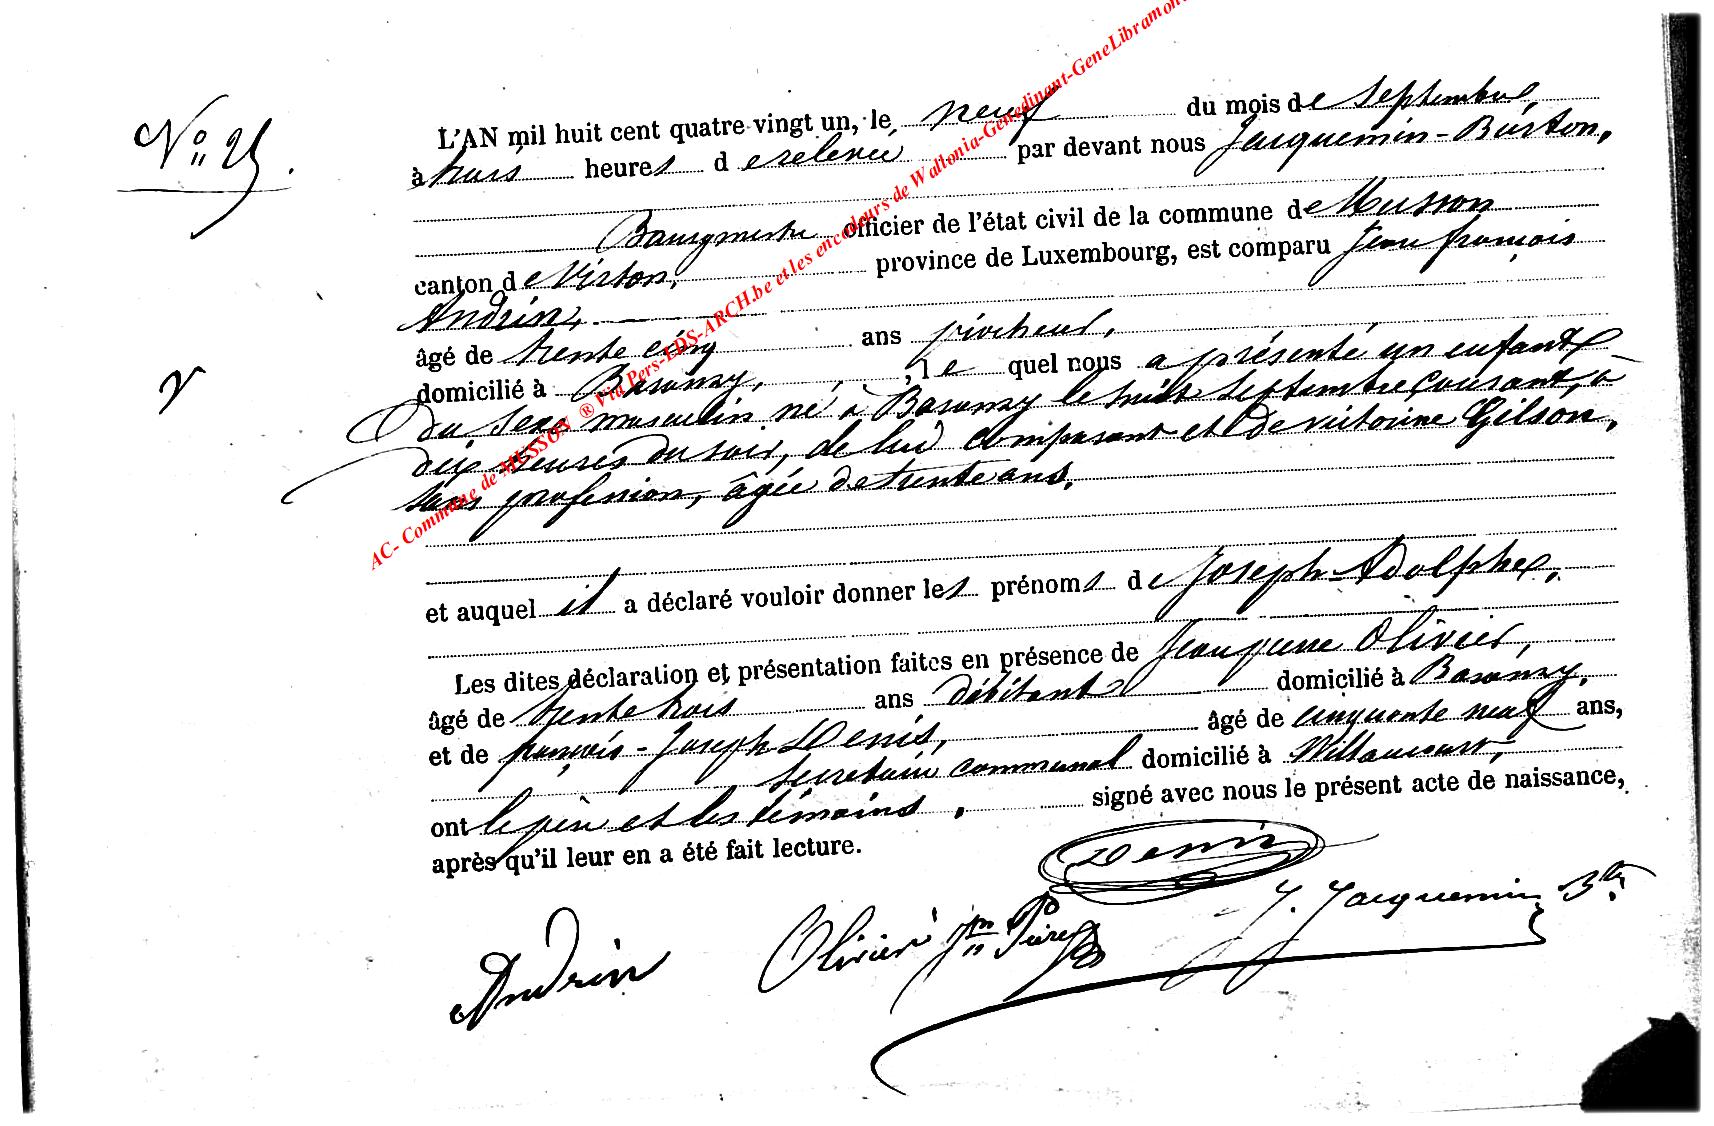 N° 25.
L'AN mil huit cent quatre-vingt un, le neuf du mois de septembre,
à trois heures de relevée par devant nous Jacquemin-Burton,
Bourgmestre officier de l'état civil de la commune de Musson
canton de Virton, province de Luxembourg, est comparu Jean françois
Andrin,
âgé de trente cinq ans piocheur,
domicilié à Baranzy, le quel nous a présenté un enfant
du sexe masculin né à Baranzy le huit septembre courant, à
dix heures du soir, de lui comparant et de victorine Gilson,
sans profession, âgée de trente ans.
et auquel il a déclaré vouloir donner les prénoms de Joseph-Adolphe.
Les dites déclaration et présentation faites en présence de Jean pierre Olivier,
âgé de trente trois ans débitant domicilié à Baranzy,
et de françois-Joseph Denis, âgé de cinquante neuf ans,
secrétaire communal domicilié à Willancourt,
ont le père et les témoins. signé avec nous le présent acte de naissance,
après qu'il leur en a été fait lecture.
Denis
Andrin Olivier Jn Pierre J. Jacquemin Bton
AC- Commune de MUSSON ® Via Pers-LDS-ARCH.be et les encodeurs de Wallonia-Genedinant-GeneLibramont